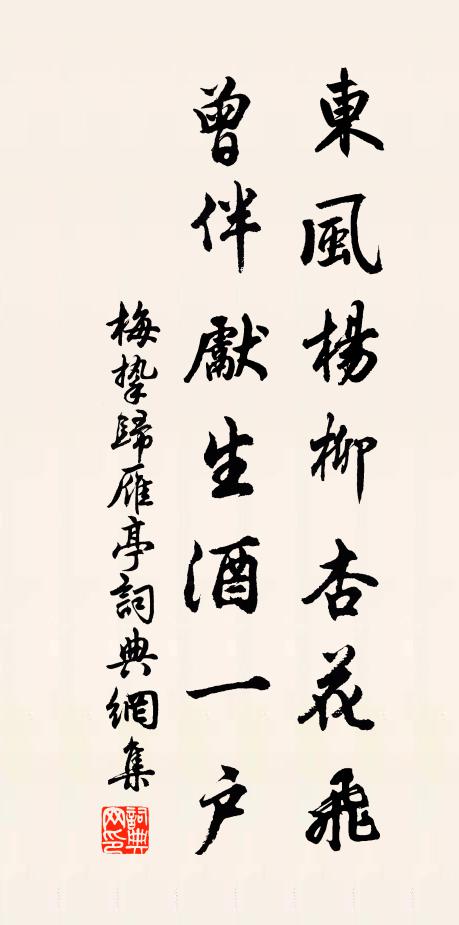 東風楊柳杏花飛
曾伴獻生酒一户
梅摯歸雁亭詞典網集
詞典網印